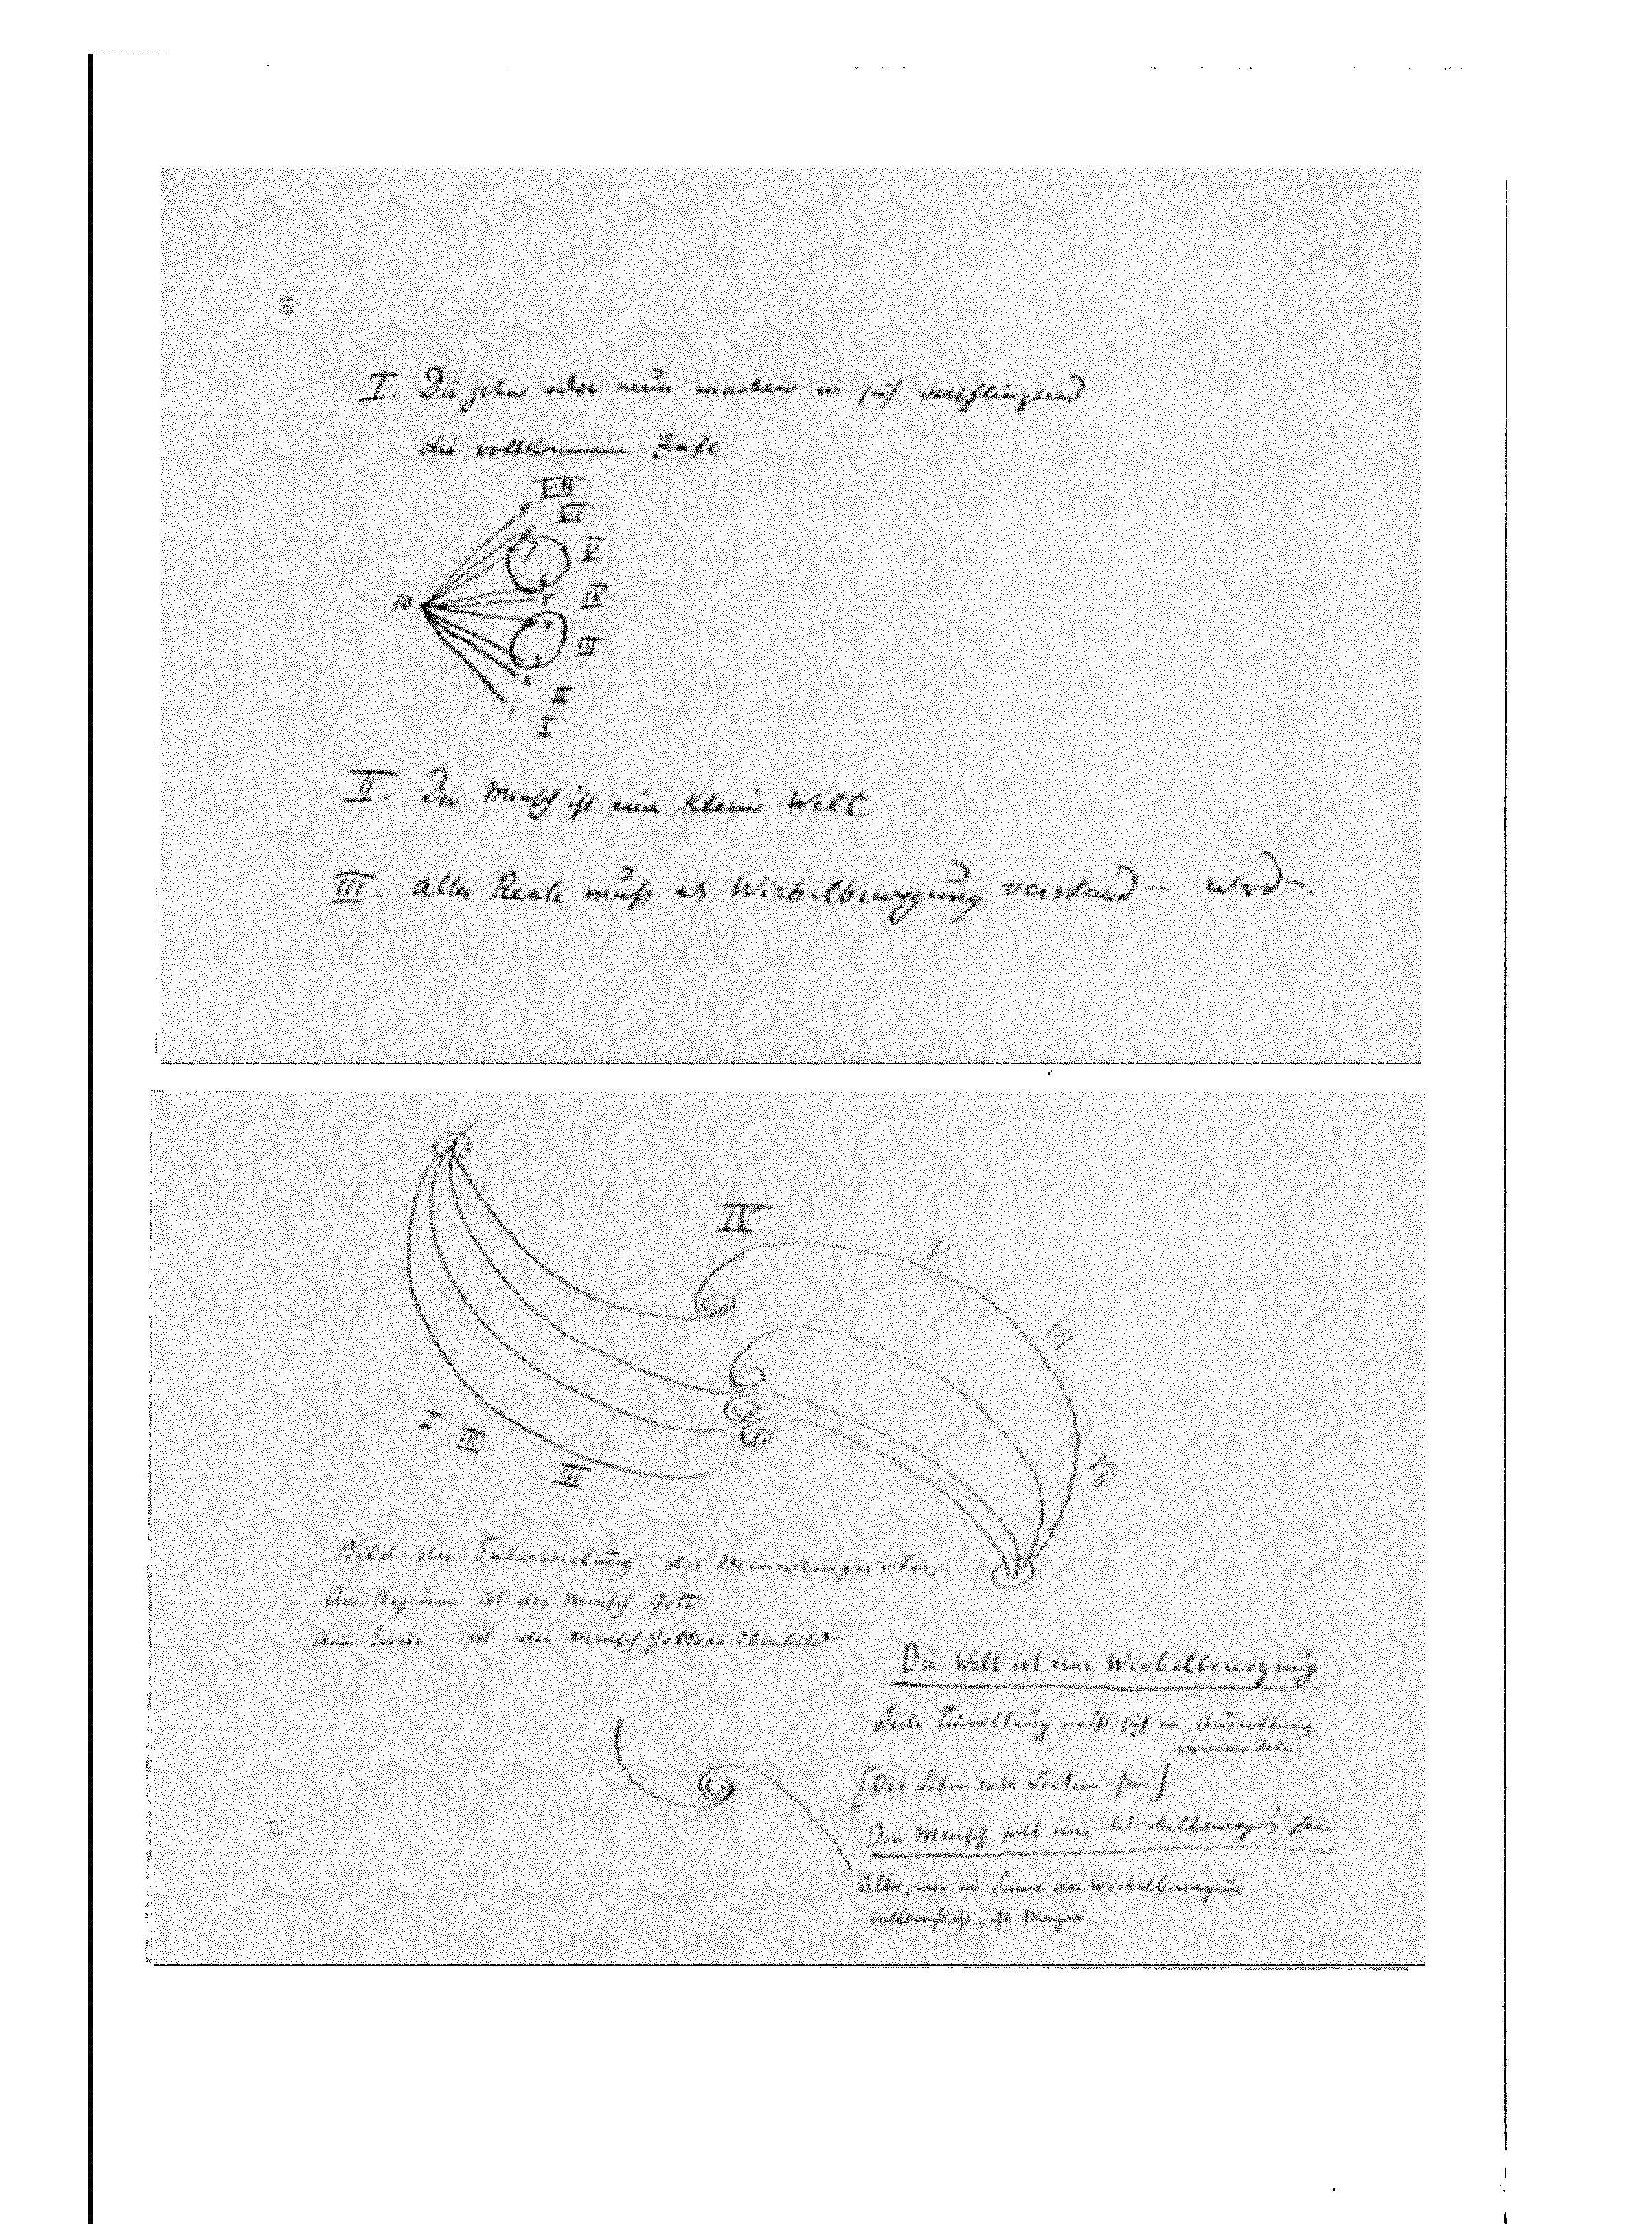 I. Die zehn oder neun machen in sich verschlingend
die vollkommene Zahl
VII
9
VI
8
7
V
6
10
5
IV
4
III
3
2
II
1
I
II. Der Mensch ist eine kleine Welt.
III. Alles Reale muß als Wirbelbewegung verstand– werd–.
IV
V
VI
I
II
III
VII
Bild der Entwickelung des Menschengeistes.
Am Beginne ist der Mensch Gott
Am Ende ist der Mensch Gottes Ebenbild
Die Welt ist eine Wirbelbewegung
Jede Einrollung muß sich in Ausrollung
verwandeln.
[Das Leben soll sein]
Der Mensch soll eine Wirbelbewegung sein
Alles, was im Sinne der Wirbelbewegung
vollbracht ist, ist Magie.